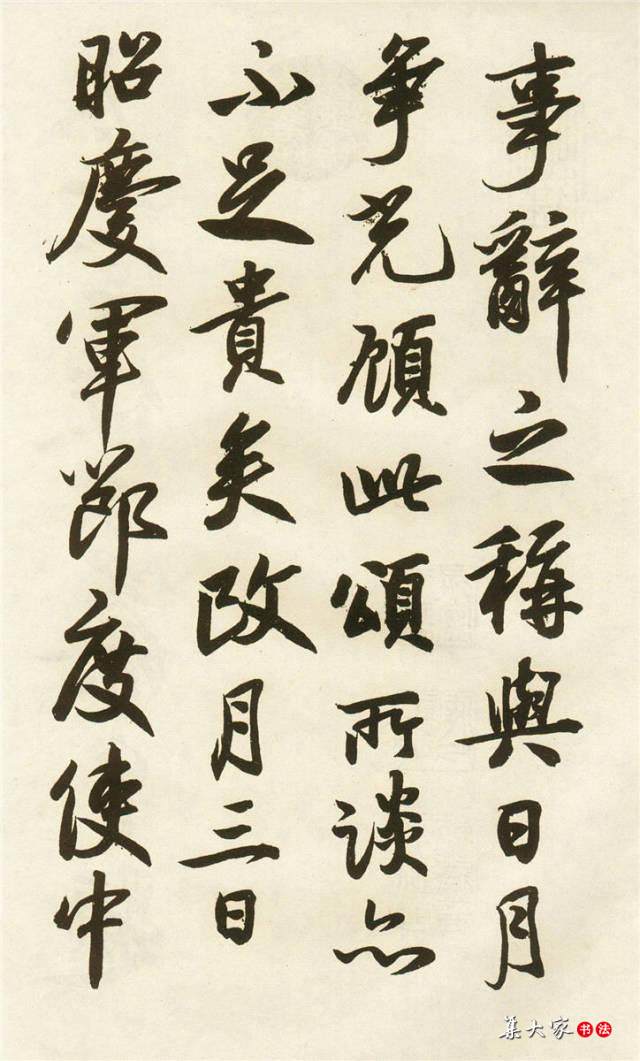 事辭之稱與日月
爭光顧此頌所談亦
不足貴矣政月三日
昭慶軍節度使中
集大家 书法